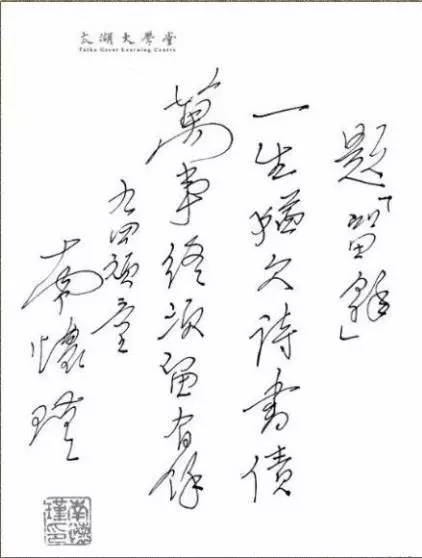 太湖大學堂
Taihu Great Learning Centre
題「留餘」
一生猶欠詩書債
萬事終須留有餘
九四頑童
南懷瑾
南懷
瑾印